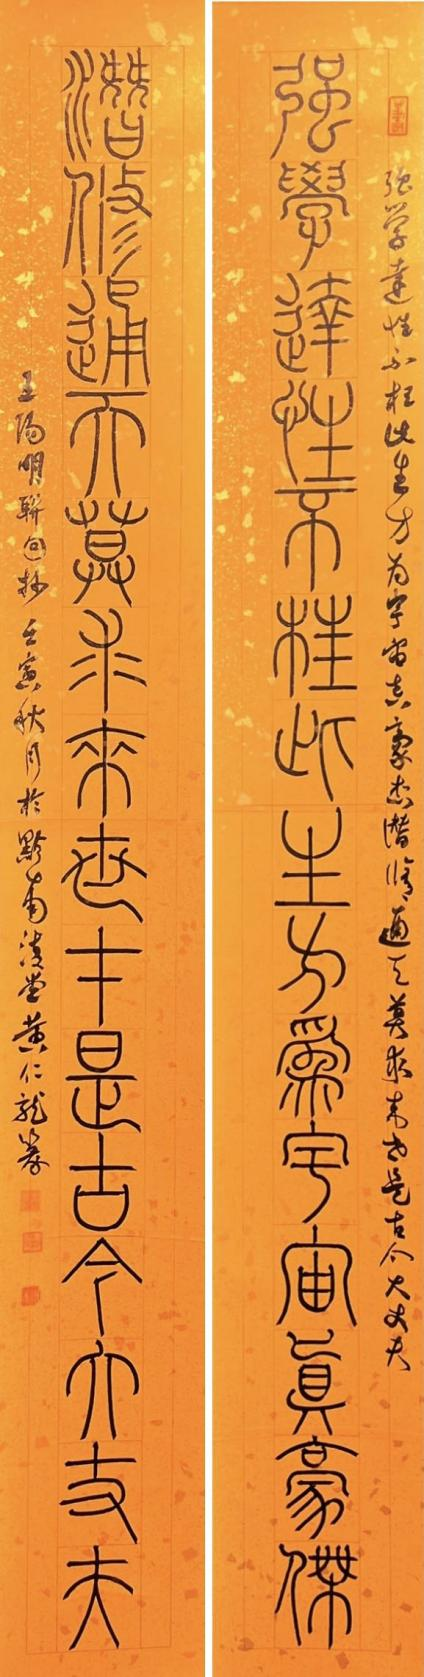 强学達性不枉此生方为宇宙真豪杰潜修通天莫求来世是古今大丈夫
强學達性不枉此生方爲宇宙眞豪傑
潛修通天莫求來世才是古今大丈夫
王陽明聯句抄 壬寅秋月於黔南 黄仁龍篆